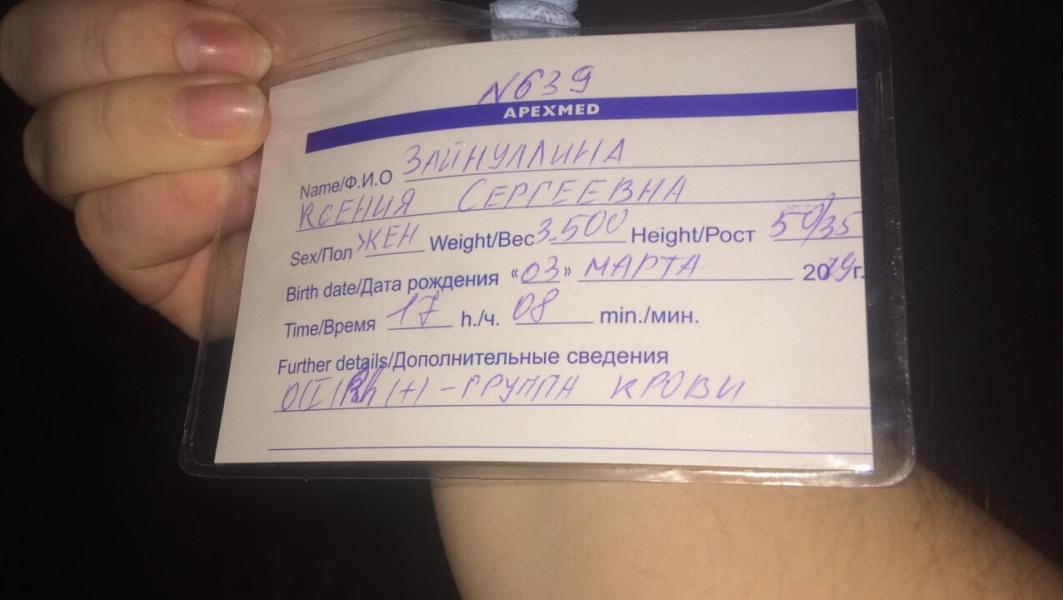 N639
APEXMED
Name/Ф.И.О ЗАЙНУЛЛИНА
КСЕНИЯ СЕРГЕЕВНА
Sex/Пол ЖЕН Weight/Вес 3.500 Height/Рост 50/35
Birth date/Дата рождения «03» МАРТА 2019г.
Time/Время 17 h./ч. 08 min./мин.
Further details/Дополнительные сведения
O(I)Rh(+) - ГРУППА КРОВИ